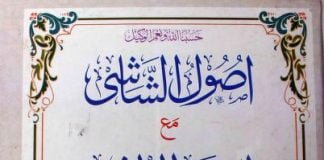 حسبنا الله ونعم الوكيل
اصول الشاشى
مع